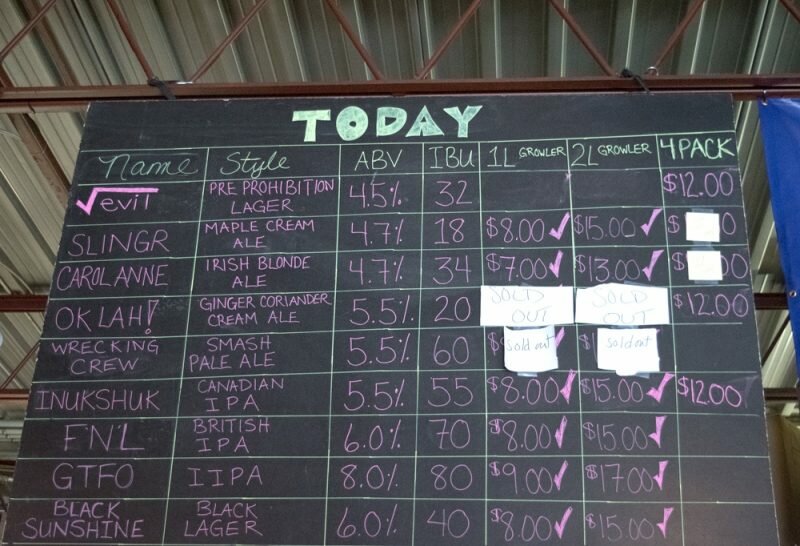 TODAY
Name Style ABV IBU 1L GROWLER 2L GROWLER 4PACK
√evil PRE PROHIBITION LAGER 4.5% 32 $12.00
SLINGR MAPLE CREAM ALE 4.7% 18 $8.00 ✓ $15.00 ✓ $ 0
CAROL ANNE IRISH BLONDE ALE 4.7% 34 $7.00 ✓ $13.00 ✓ $ 00
OK LAH! GINGER CORIANDER CREAM ALE 5.5% 20 SOLD OUT SOLD OUT $12.00
WRECKING CREW SMASH PALE ALE 5.5% 60 $ sold out $1 sold out
INUKSHUK CANADIAN IPA 5.5% 55 $8.00 ✓ $15.00 ✓ $12.00
FNL BRITISH IPA 6.0% 70 $8.00 ✓ $15.00 ✓
GTFO IIPA 8.0% 80 $9.00 ✓ $17.00 ✓
BLACK SUNSHINE BLACK LAGER 6.0% 40 $8.00 ✓ $15.00 ✓